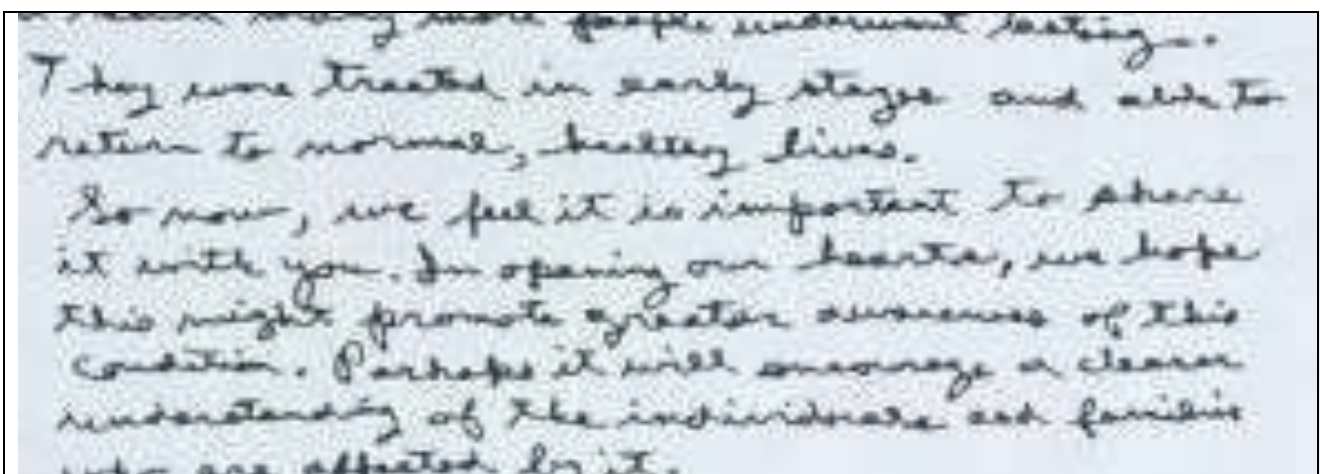 many more people underwent testing.
They were treated in early stages and able to
return to normal, healthy lives.
So now, we feel it is important to share
it with you. In opening our hearts, we hope
this might promote greater awareness of this
condition. Perhaps it will encourage a clearer
understanding of the individuals and families
who are affected by it.